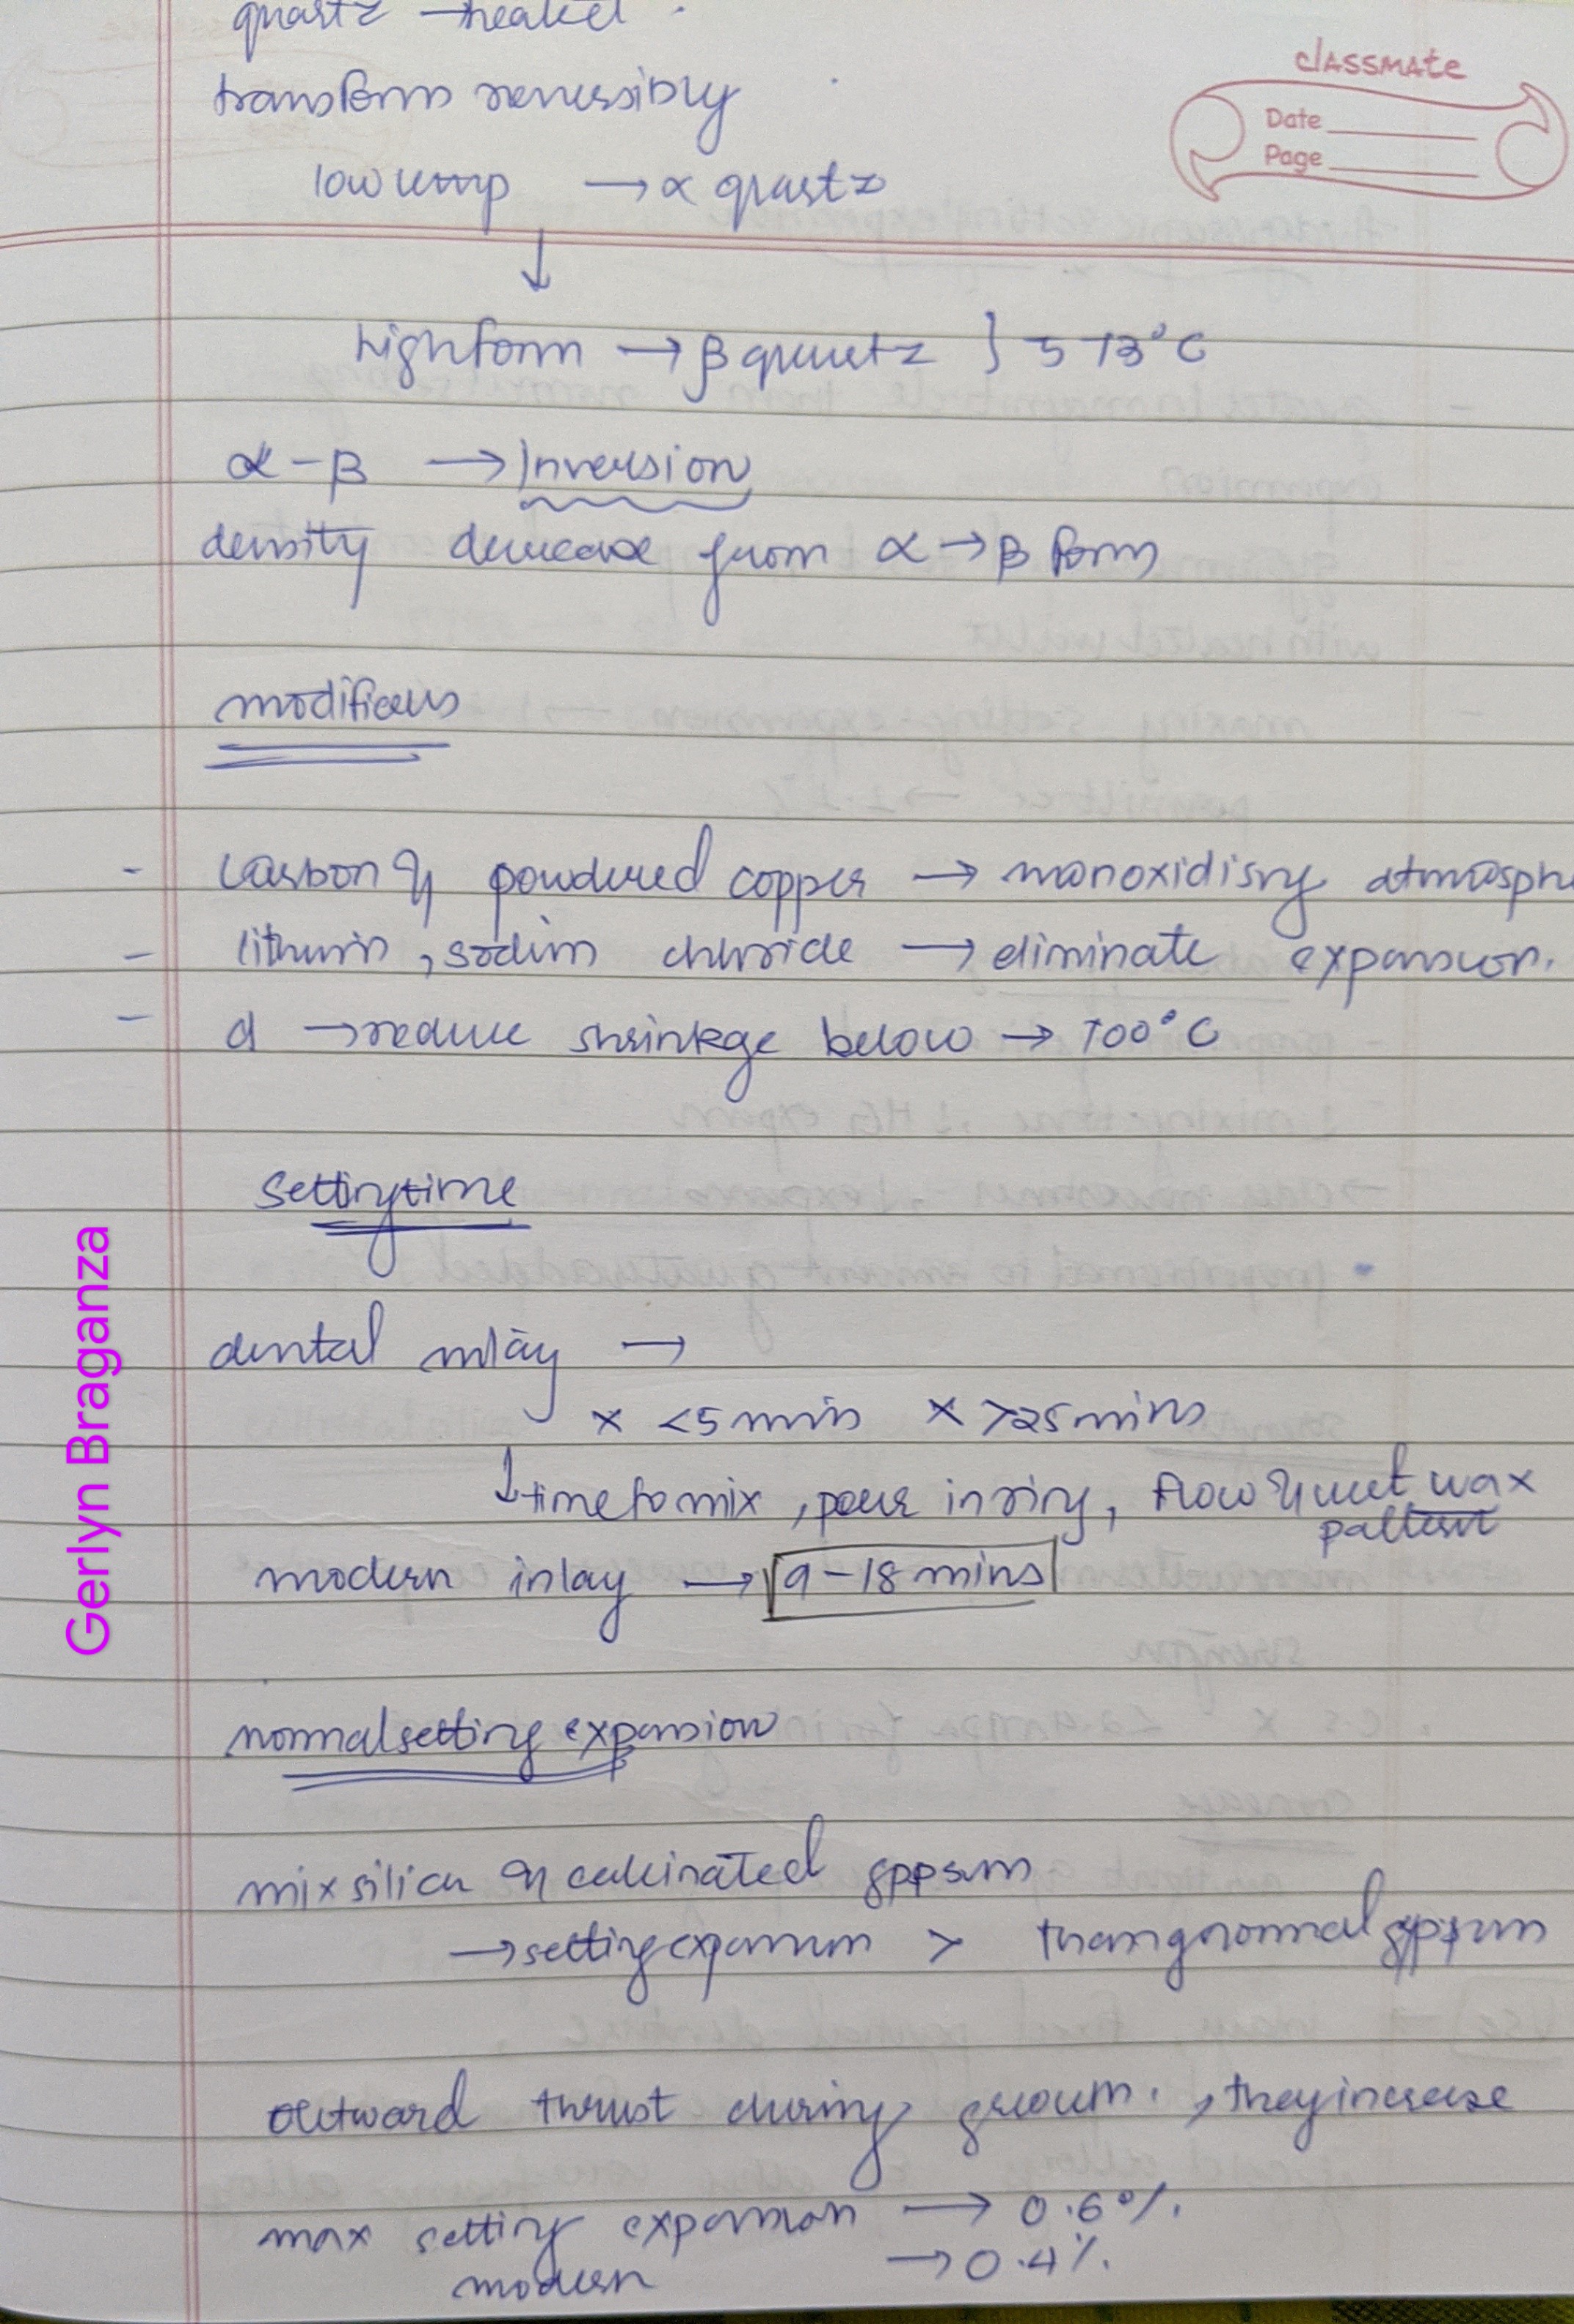 quartz → heated.
transform reversibly
low temp → α quartz
classmate
Date
Page
↓
high form → β quartz } 573°C
α-β → Inversion
density decrease from α → β form
modifiers
- Carbon & powdered copper → nonoxidising atmosphe
- lithium, sodium chloride → eliminate expansion.
- cl → reduce shrinkage below → 700°C
Setting time
dental inlay →
x <5 mins x >25 mins
↓ time to mix, pour in ring, flow & wet wax
pattern
modern inlay → 9-18 mins
normal setting expansion
mix silica & calcinated gypsum
→ setting expansion > than normal gypsum
outward thrust during growth., they increase
max setting expansion → 0.6%.
modern → 0.4%.
Gerlyn Braganza